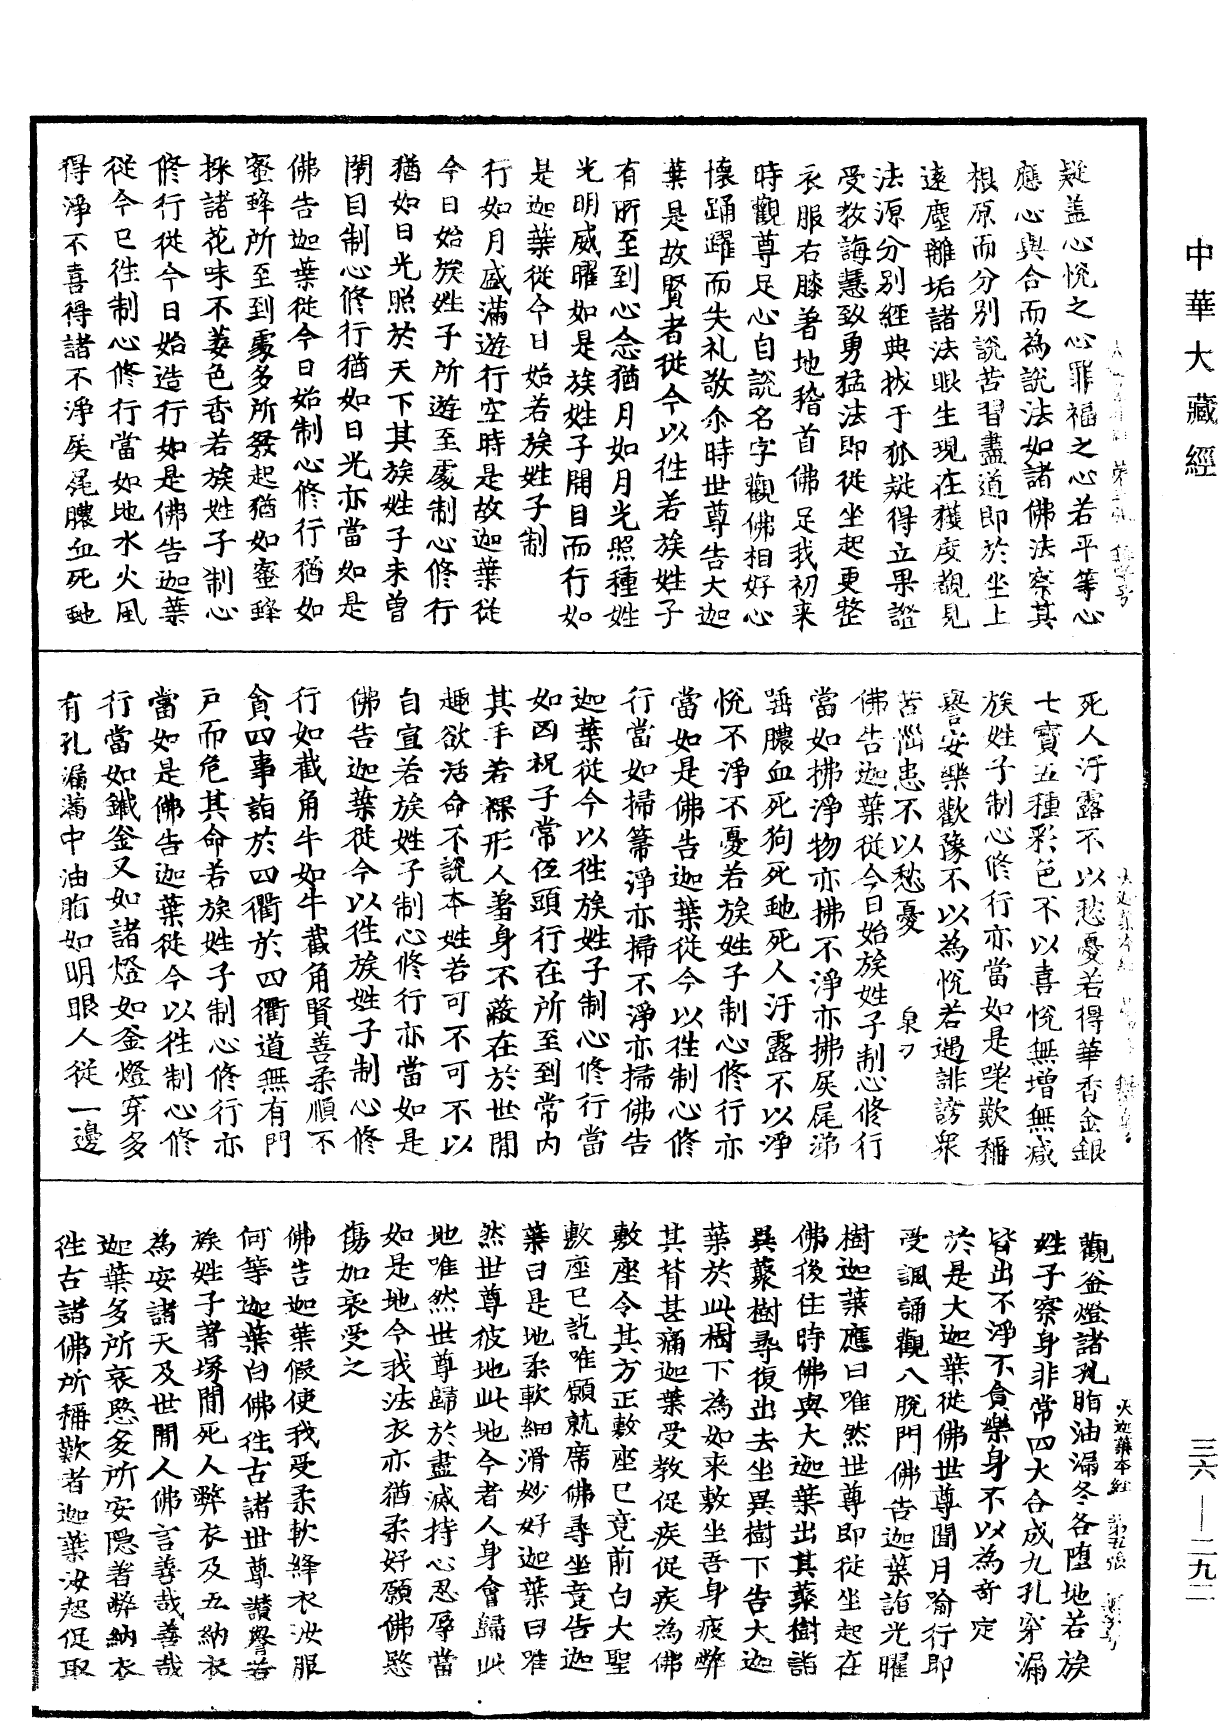 中華大藏經
疑盖心悅之心罪福之心若平等心
應心與合而為說法如諸佛法察其
根原而分別說苦習盡道即於坐上
遠塵離垢諸法眼生現在獲度觀見
法源分別經典拔于狐疑得立果證
受教誨慧致勇猛法即從坐起更整
衣服右膝著地稽首佛足我初来
時觀尊足心自說名字觀佛相好心
懷踊躍而失礼敬尒時世尊告大迦
葉是故賢者從今以往若族姓子
有所至到心念猶月如月光照種姓
光明威曜如是族姓子開目而行如
是迦葉從今日始若族姓子制
行如月盛滿遊行空時是故迦葉從
今日始族姓子所遊至處制心修行
猶如日光照於天下其族姓子未曾
閉目制心修行猶如日光亦當如是
佛告迦葉從今日始制心修行猶如
蜜蜂所至到處多所發起猶如蜜蜂
採諸花味不萎色香若族姓子制心
修行從今日始造行如是佛告迦葉
從今已往制心修行當如地水火風
得淨不喜得諸不淨屎尿膿血死虵
死人汙露不以愁憂若得華香金銀
七寶五種彩色不以喜悅無增無減
族姓子制心修行亦當如是嗟歎稱
譽安樂歡豫不以為悅若遇誹謗衆
苦惱患不以愁憂
佛告迦葉從今日始族姓子制心修行
當如拂淨物亦拂不淨亦拂屎尾涕
唾膿血死狗死虵死人汙露不以淨
悅不淨不憂若族姓子制心修行亦
當如是佛告迦葉從今以往制心修
行當如掃箒淨亦掃不淨亦掃佛告
迦葉從今以往族姓子制心修行當
如凶祝子常伍頭行在所至到常内
其手若裸形人著身不蔽在於世閒
趣欲活命不說本姓若可不可不以
自宣若族姓子制心修行亦當如是
佛告迦葉從今以往族姓子制心修
行如截角牛如牛截角賢善柔順不
貪四事詣於四衢於四衢道無有門
戶而危其命若族姓子制心修行亦
當如是佛告迦葉從今以往制心修
行當如鐵釜又如諸燈如釜燈穿多
有孔漏滿中油脂如明眼人從一邊
觀釜燈諸孔脂油漏各各墮地若族
姓子察身非常四大合成九孔穿漏
皆出不淨不貪樂身不以為奇定
於是大迦葉從佛世尊聞月喻行即
受諷誦觀八脫門佛告迦葉詣光曜
樹迦葉應曰唯然世尊即從坐起在
佛後住時佛與大迦葉出其藂樹詣
異藂樹尋復出去坐異樹下告大迦
葉於此樹下為如来敷坐吾身疲弊
其背甚痛迦葉受教促疾促疾為佛
敷座令其方正敷座已竟前白大聖
敷座已訖唯願就席佛尋坐竟告迦
葉曰是地柔軟細滑妙好迦葉曰唯
然世尊彼地此地今者人身會歸此
地唯然世尊歸於盡滅持心忍辱當
如是地今我法衣亦猶柔好願佛愍
傷如哀受之
佛告迦葉假使我受柔軟絳衣汝服
何等迦葉白佛往古諸世尊讃譽若
族姓子著塚閒死人弊衣及五納衣
為安諸天及世閒人佛言善哉善哉
迦葉多所哀愍多所安隱著弊納衣
往古諸佛所稱歎者迦葉汝起促取
大迦葉本經 第五張
三六—二九二